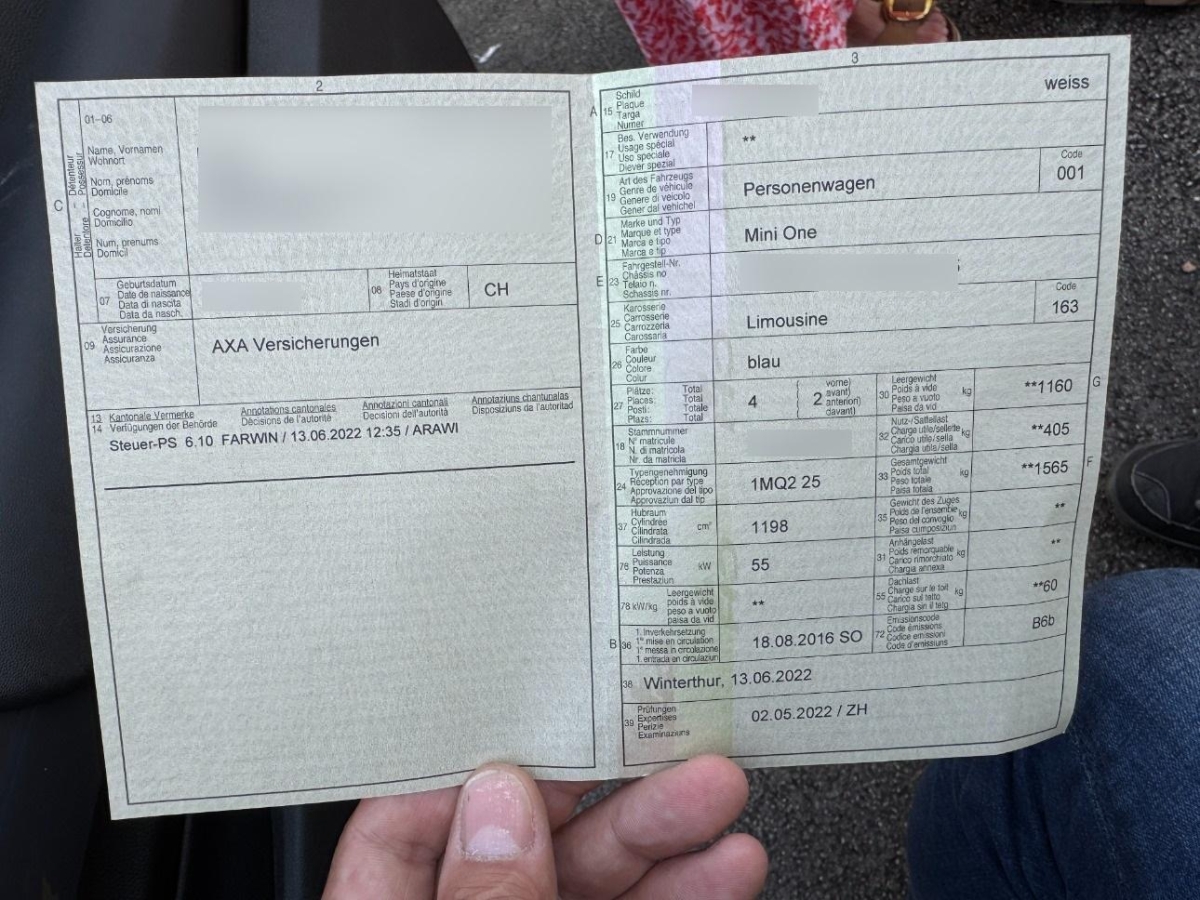 2
01-06
Name, Vornamen
Wohnort
Nom, prénoms
Domicile
Cognome, nomi
Domicilio
Num, prenums
Domicil
C
Halter
Détenteur
Detentore
Possessur
07
Geburtsdatum
Date de naissance
Data di nascita
Data da nasch.
08
Heimatstaat
Pays d'origine
Paese d'origine
Stadi d'origin
CH
09
Versicherung
Assurance
Assicurazione
Assicuranza
AXA Versicherungen
13 Kantonale Vermerke Annotations cantonales Annotazioni cantonali Annotaziuns chantunalas
14 Verfügungen der Behörde Décisions de l'autorité Decisioni dell'autorità Disposiziuns da l'autoritad
Steuer-PS 6.10 FARWIN / 13.06.2022 12:35 / ARAWI
3
A 15
Schild
Plaque
Targa
Numer
weiss
17
Bes. Verwendung
Usage spécial
Uso speciale
Diever spezial
**
19
Art des Fahrzeugs
Genre de véhicule
Genere di veicolo
Gener dal vehichel
Personenwagen
Code
001
D 21
Marke und Typ
Marque et type
Marca e tipo
Marca e tip
Mini One
E 23
Fahrgestell-Nr.
Châssis no
Telaio n.
Schassis nr.
25
Karosserie
Carrosserie
Carrozzeria
Carossaria
Limousine
Code
163
26
Farbe
Couleur
Colore
Colur
blau
27
Plätze: Total
Places: Total
Posti: Totale
Plazs: Total
4
2
vorne)
avant)
anteriori)
davant)
30
Leergewicht
Poids à vide
Peso a vuoto
Paisa da vid
kg
**1160
G
18
Stammnummer
N° matricule
N. di matricola
Nr. da matricla
32
Nutz-/Sattellast
Charge utile/sellette
Carico utile/sella
Chargia utila/sella
kg
**405
24
Typengenehmigung
Réception par type
Approvazione del tipo
Approvaziun dal tip
1MQ2 25
33
Gesamtgewicht
Poids total
Peso totale
Paisa totala
kg
**1565
F
37
Hubraum
Cylindrée
Cilindrata
Cilindrada
cm³
1198
35
Gewicht des Zuges
Poids de l'ensemble
Peso del convoglio
Paisa cumposiziun
kg
**
76
Leistung
Puissance
Potenza
Prestaziun
kW
55
31
Anhängelast
Poids remorquable
Carico rimorchiato
Chargia annexa
kg
**
78 kW/kg
Leergewicht
poids à vide
peso a vuoto
paisa da vid
**
55
Dachlast
Charge sur le toit
Carico sul tetto
Chargia sin il tetg
kg
**60
B 36
1. Inverkehrsetzung
1re mise en circulation
1a messa in circolazione
1. entrada en circulaziun
18.08.2016 SO
72
Emissionscode
Code émissions
Codice emissioni
Code d'emissiuns
B6b
38
Winterthur, 13.06.2022
39
Prüfungen
Expertises
Perizie
Examinaziuns
02.05.2022 / ZH